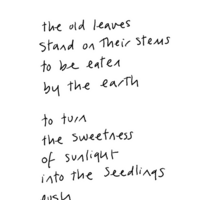 the old leaves
stand on their stems
to be eaten
by the earth
to turn
the sweetness
of sunlight
into the seedlings